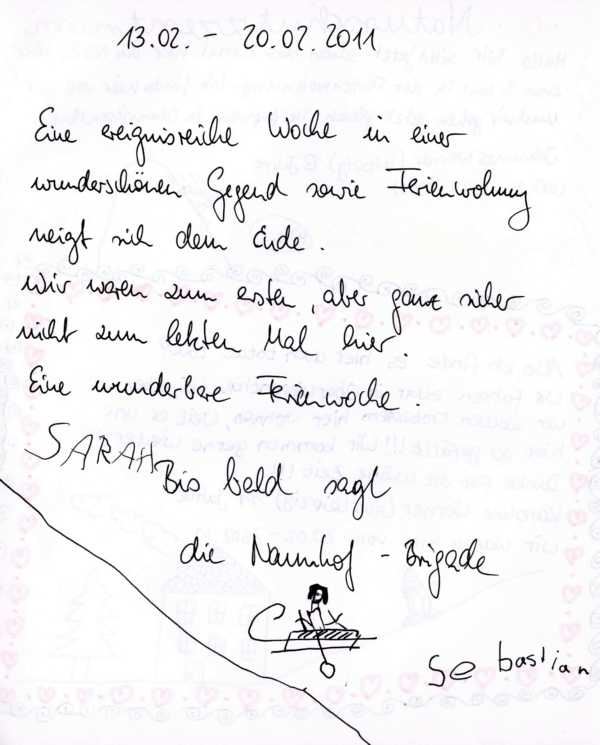 13.02. - 20.02. 2011
Eine ereignisreiche Woche in einer
wunderschönen Gegend sowie Ferienwohnung
neigt sich dem Ende.
Wir waren zum ersten, aber ganz sicher
nicht zum letzten Mal hier.
Eine wunderbare Ferienwoche
SARAH
Bis bald sagt
die Naunhof - Brigade
Sebastian